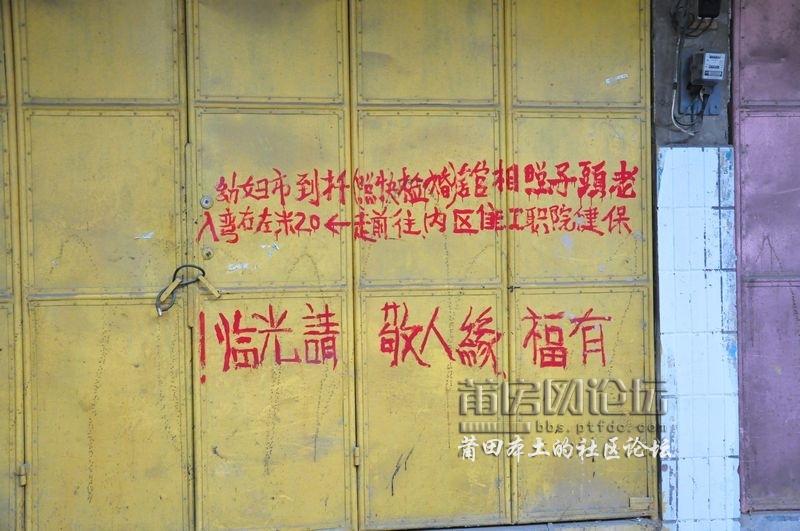 老頭子照相馆(婚检快照)扦到市妇幼
保健院职工住区内往前走←20米左右弯入
有福、緣人敬請光临!
莆房网论坛
bbs.ptfdc.com
莆田本土的社区论坛